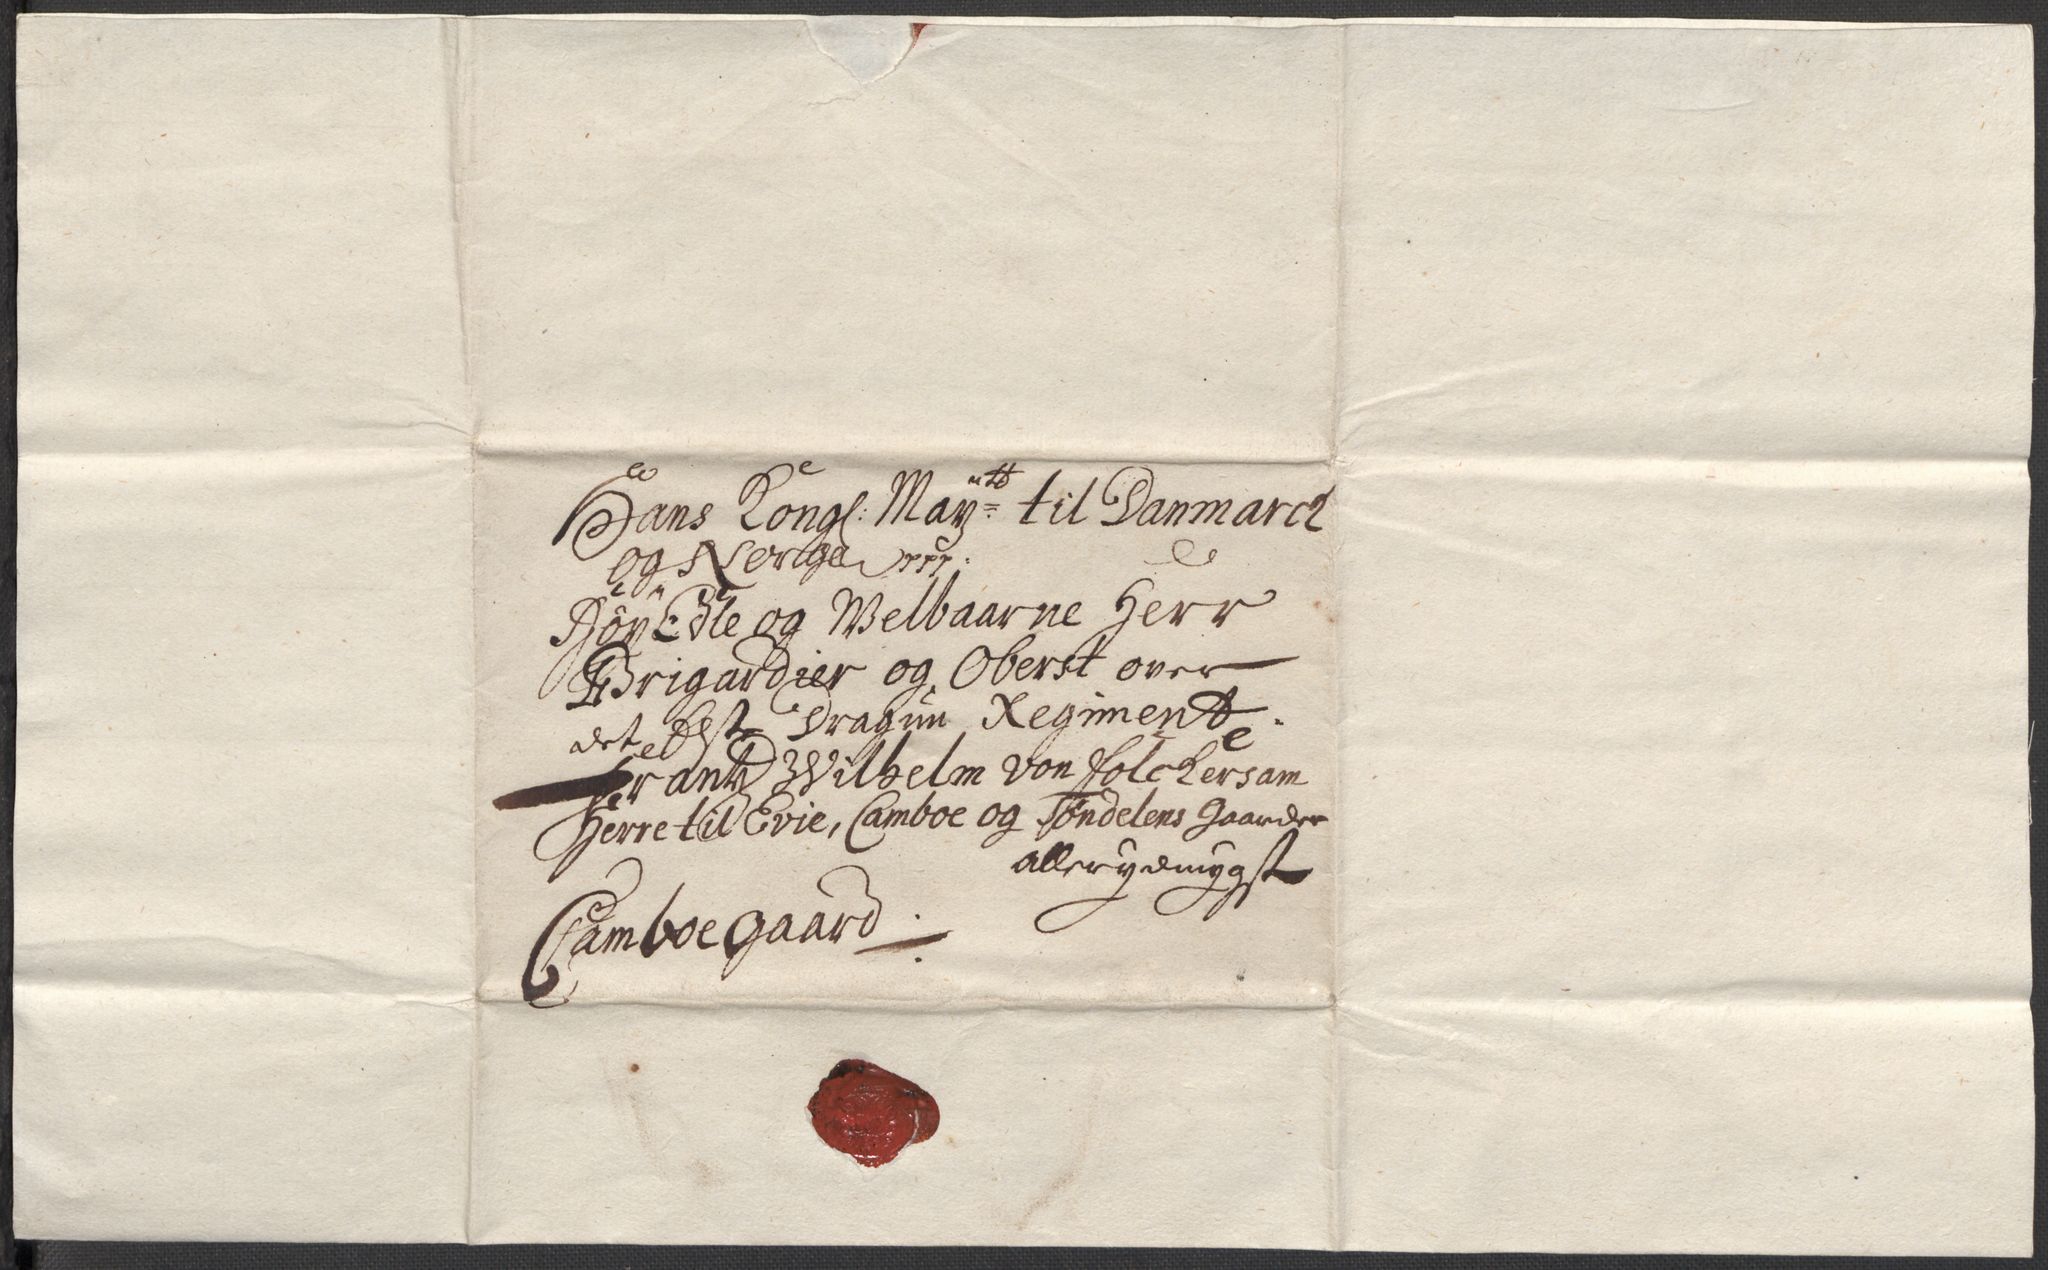 Hans Kongl: Mayᵗᵗ: til Danmarck
og Norige ppp:
Höy Edle og Welbaarne Herr
Brigardier og Oberst over
det Dragun Regimente.
Frantz Wilhelm von Folckersam
Herre til Evie, Camboe og Tøndelens Gaarder
allerydmygst
Camboegaard.